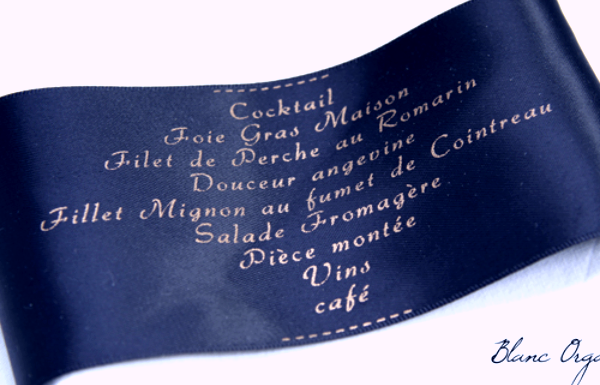 Cocktail
Foie Gras Maison
Filet de Perche au Romarin
Douceur angevine
Fillet Mignon au fumet de Cointreau
Salade Fromagère
Pièce montée
Vins
café
Blanc Orga